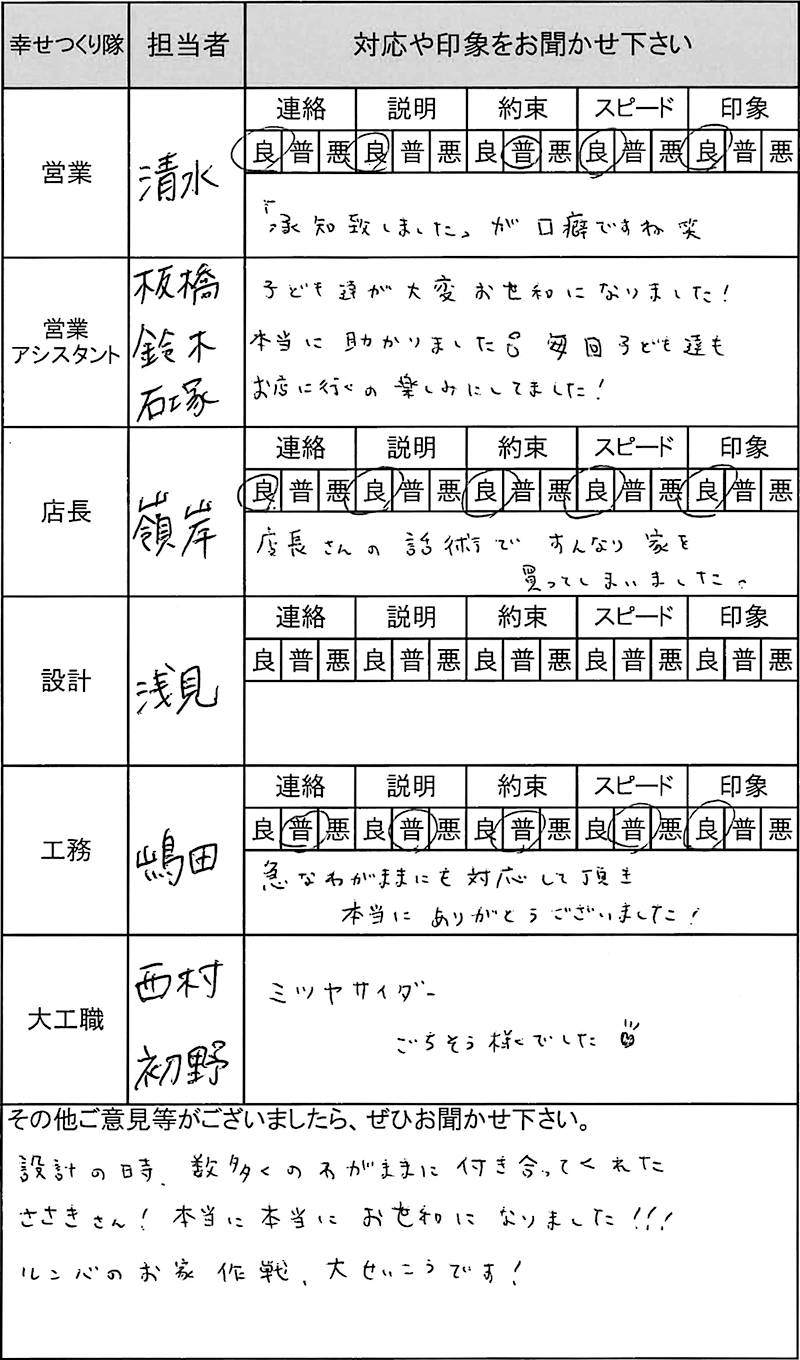 幸せつくり隊 担当者 対応や印象をお聞かせ下さい
連絡 説明 約束 スピード 印象
良 普 悪 良 普 悪 良 普 悪 良 普 悪 良 普 悪
営業 清水
「承知致しました」が口癖ですね 笑
営業
アシスタント
板橋
鈴木
石塚
子ども達が大変お世和になりました!
本当に助かりました 毎回子ども達も
お店に行くの楽しみにしてました!
連絡 説明 約束 スピード 印象
良 普 悪 良 普 悪 良 普 悪 良 普 悪 良 普 悪
店長 嶺岸
店長さんの話術ですんなり家を
買ってしまいました。
連絡 説明 約束 スピード 印象
良 普 悪 良 普 悪 良 普 悪 良 普 悪 良 普 悪
設計 浅見
連絡 説明 約束 スピード 印象
良 普 悪 良 普 悪 良 普 悪 良 普 悪 良 普 悪
工務 嶋田
急なわがままにも対応して頂き
本当にありがとうございました!
大工職
西村
初野
ミツヤサイダー
ごちそう様でした
その他ご意見等がございましたら、ぜひお聞かせ下さい。
設計の時、数多くのわがままに付き合ってくれた
ささきさん!本当に本当にお世和になりました!!!
ルンバのお家作戦、大せいこうです!